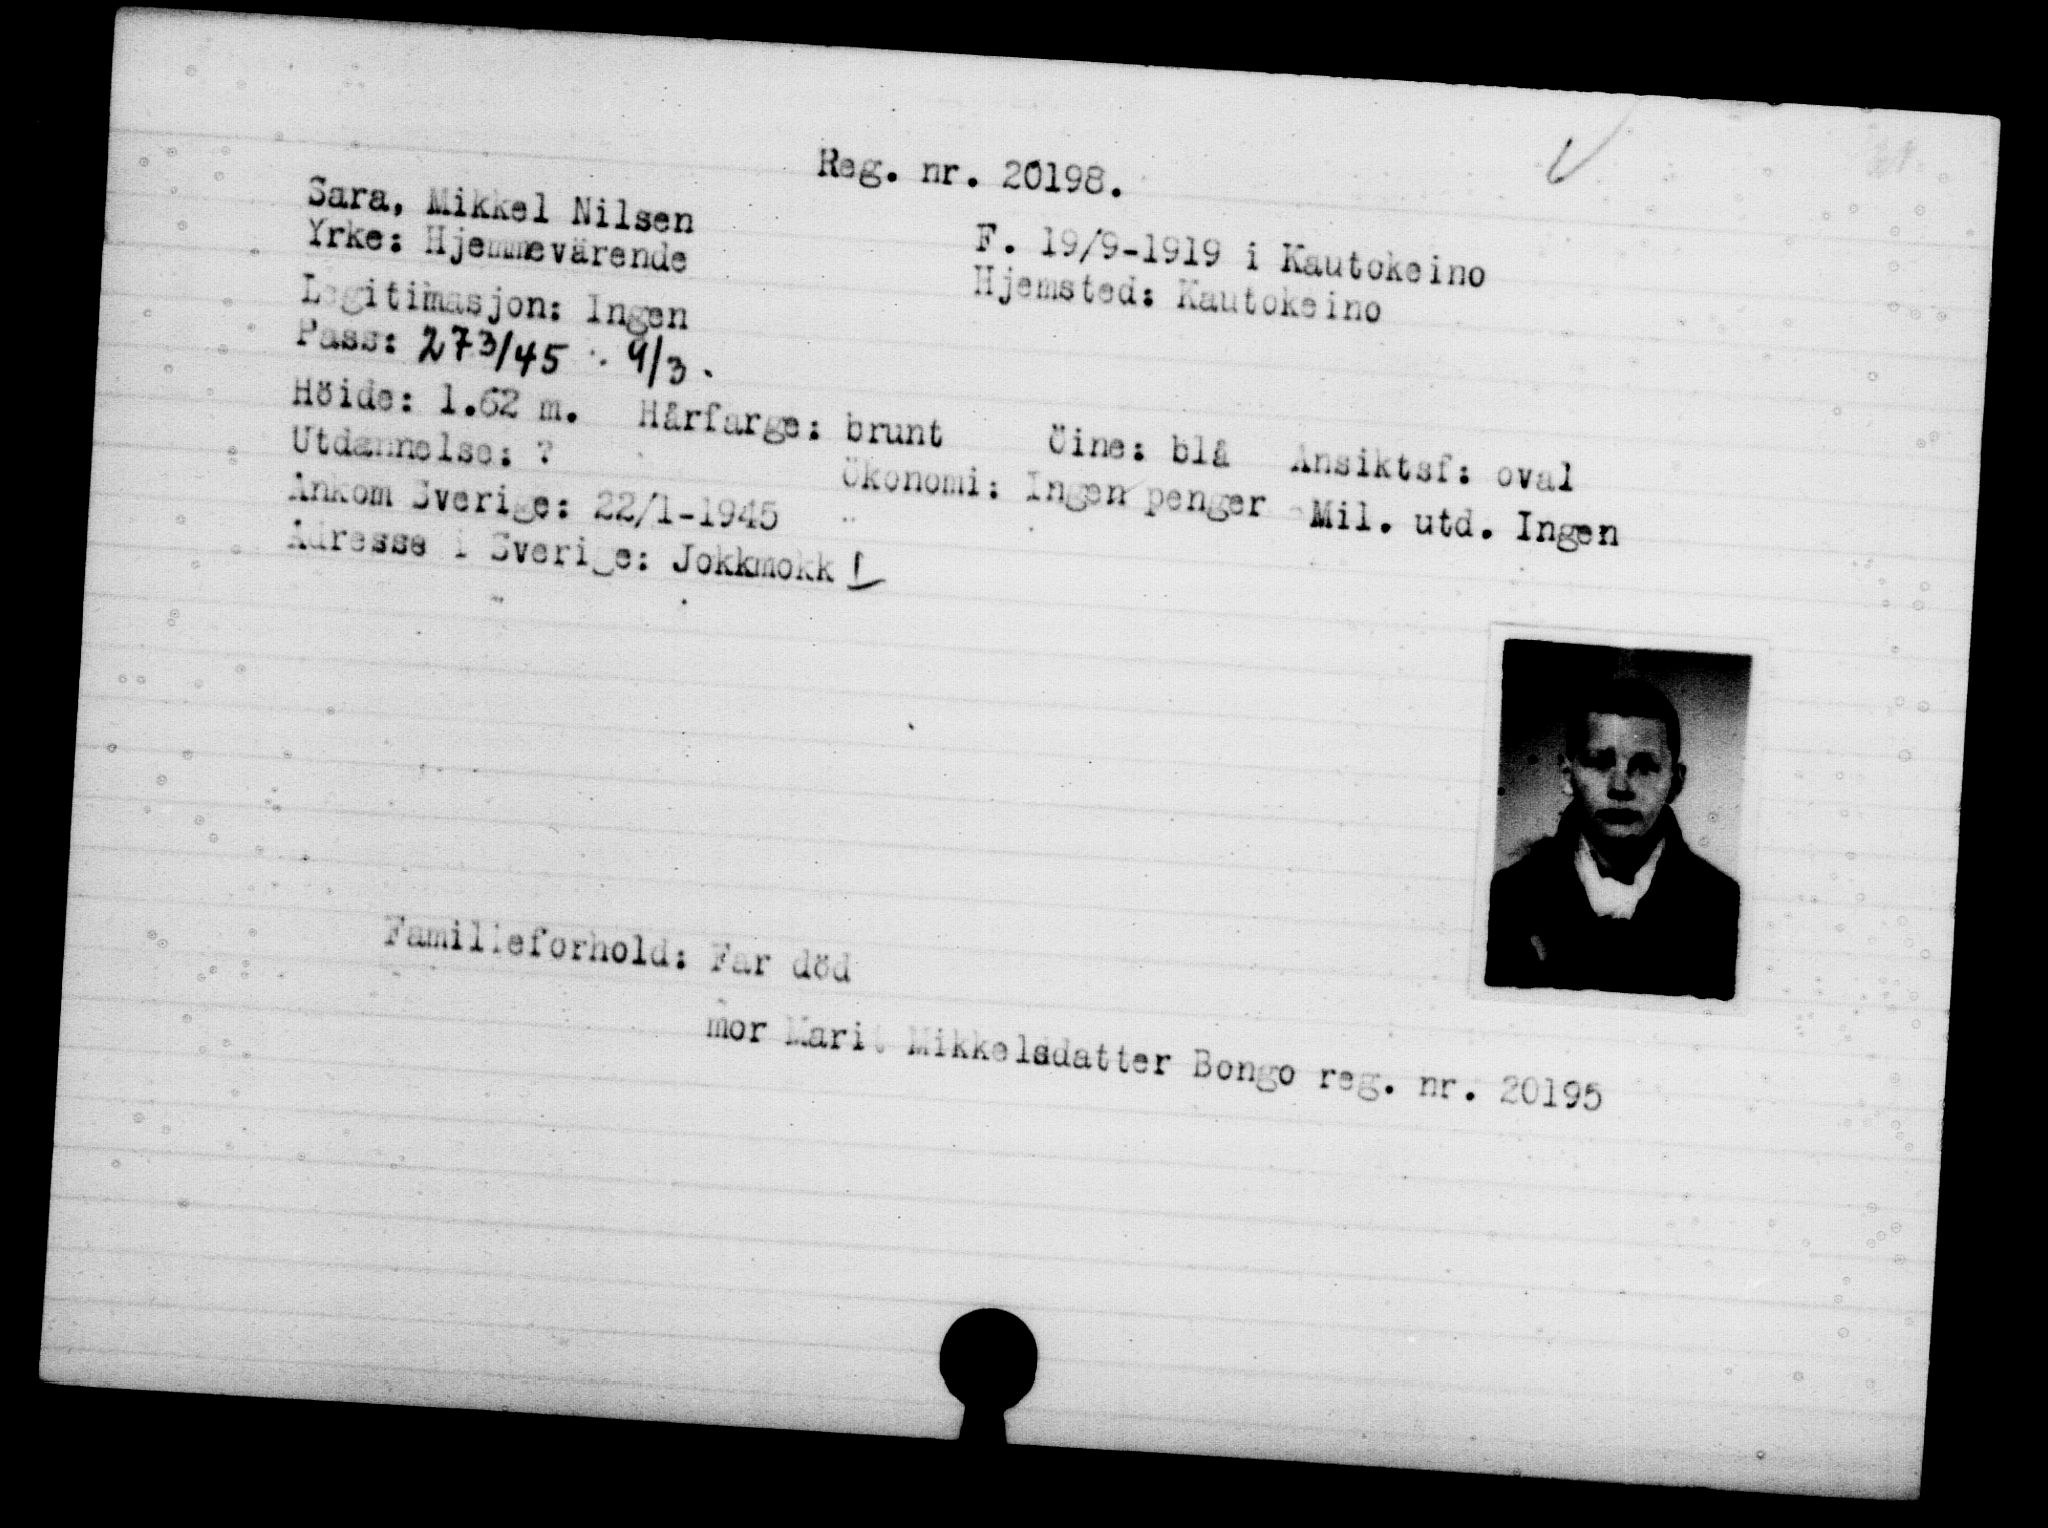 Reg. nr. 20198.
Sara, Mikkel Nilsen
F. 19/9-1919 i Kautokeino
Yrke: Hjemmevärende
Hjemsted: Kautokeino
Legitimasjon: Ingen
Pass: 273/45 . 9/3.
Höide: 1.62 m. Hårfarge: brunt Öine: blå Ansiktsf: oval
Utdannelse: ? Ökonomi: Ingen penger Mil. utd. Ingen
Ankom Sverige: 22/1-1945
Adresse i Sverige: Jokkmokk
Familieforhold: Far död
mor Marit Mikkelsdatter Bongo reg. nr. 20195